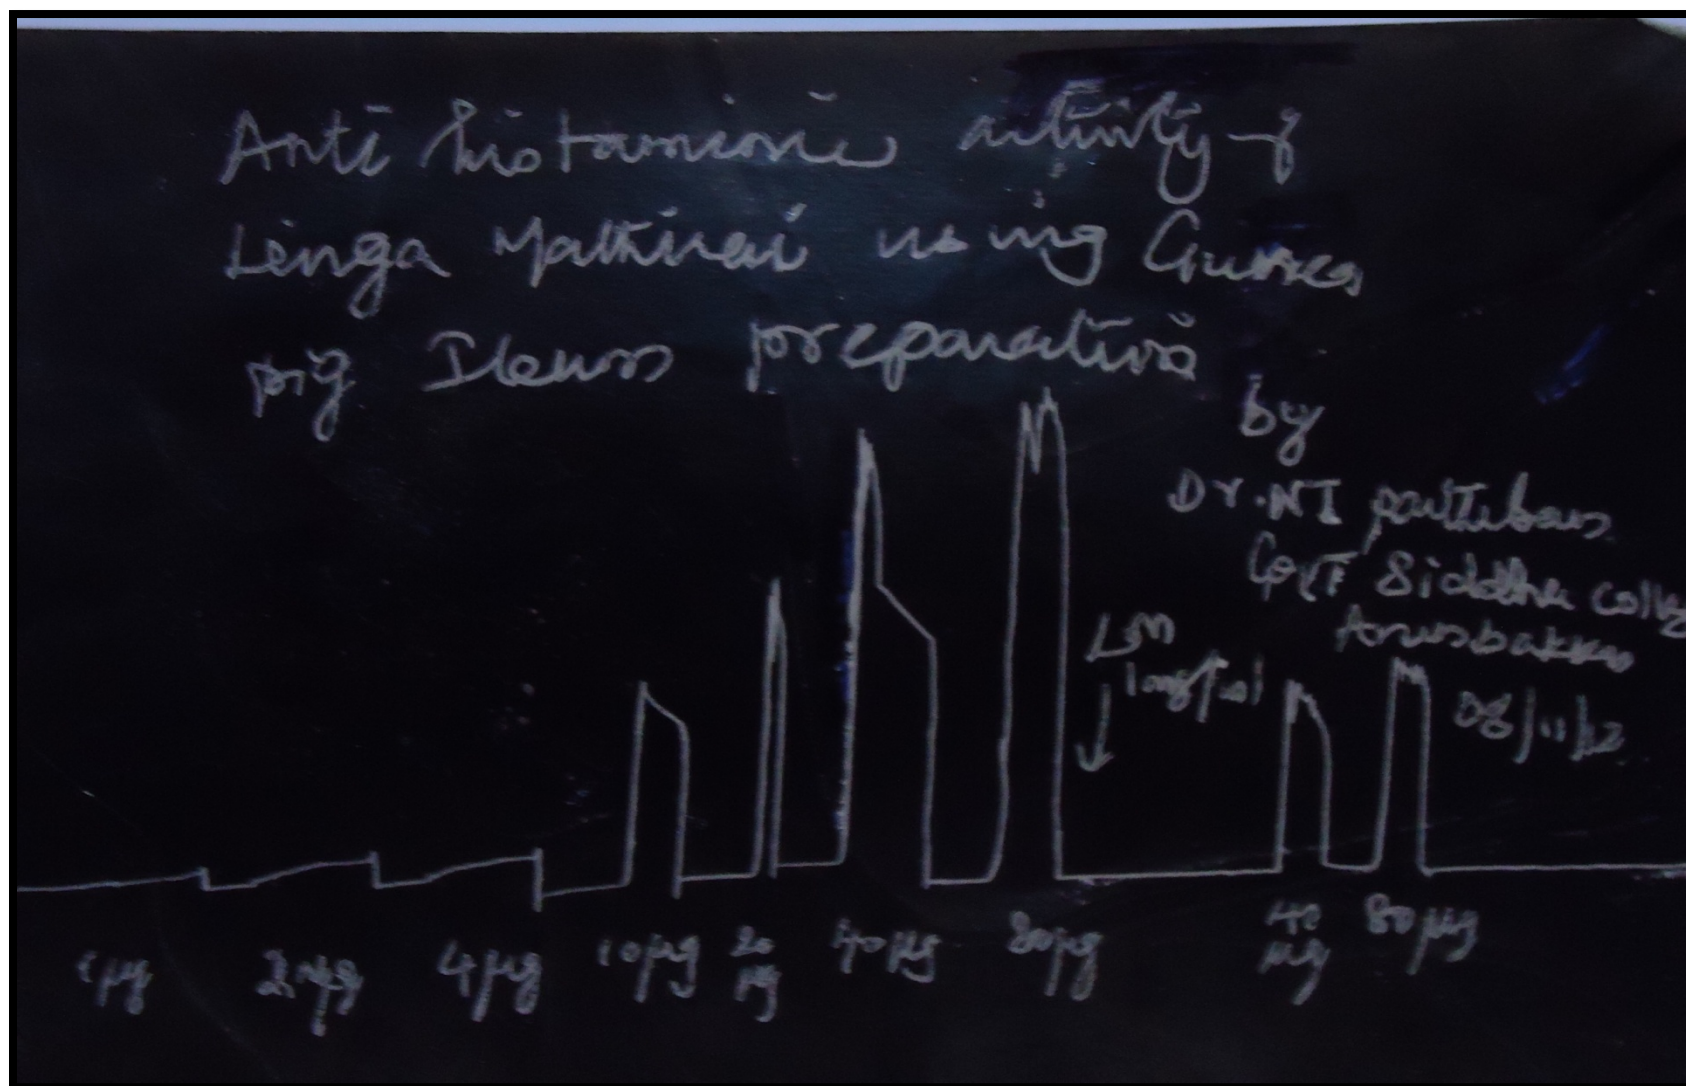 Anti histaminic activity of
Linga Mathirai using Guinea
pig Ileum preparation
by
Dr. NI parthiban
Govt Siddha colleg
Arumbakkam
08/11/12
LM
10mg/ml
1 µg
2 µg
4 µg
10 µg
20
µg
40 µg
80 µg
40
µg
80 µg